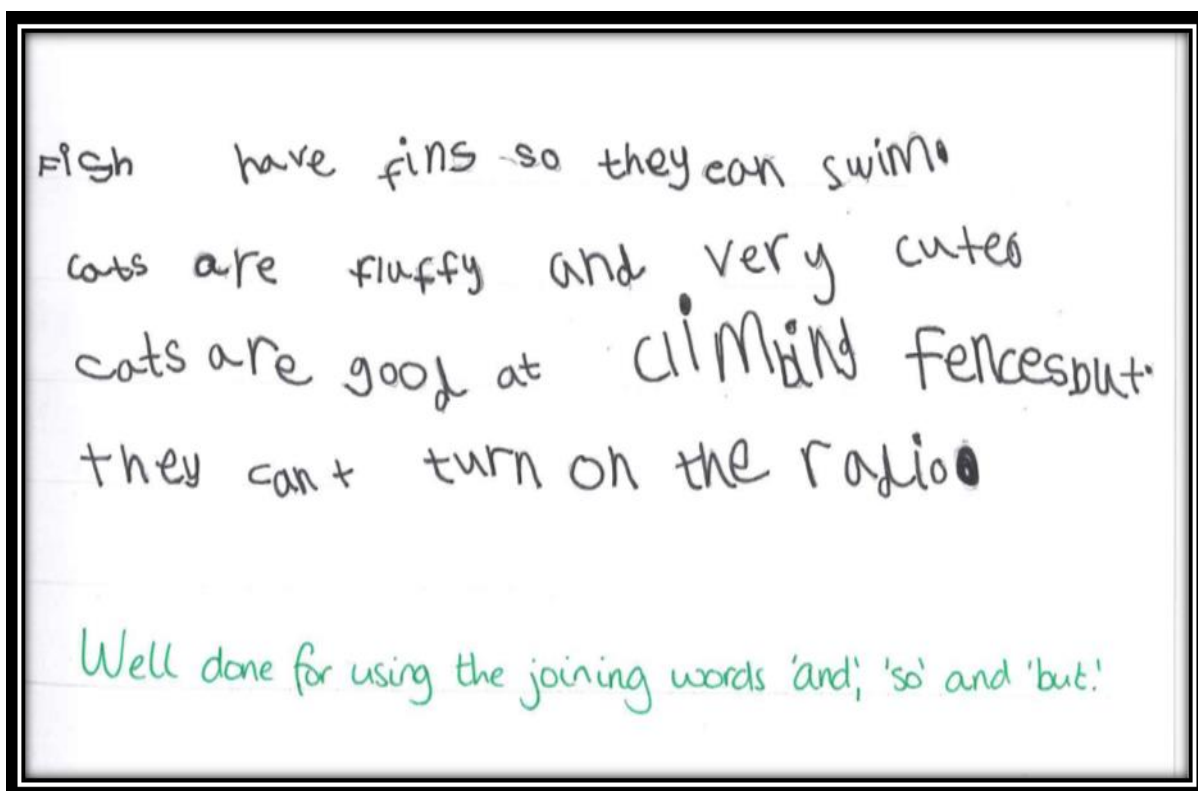 Fish have fins so they can swim.
cats are fluffy and very cute.
cats are good at climbing fences but
they cant turn on the radio.
Well done for using the joining words 'and', 'so' and 'but'.